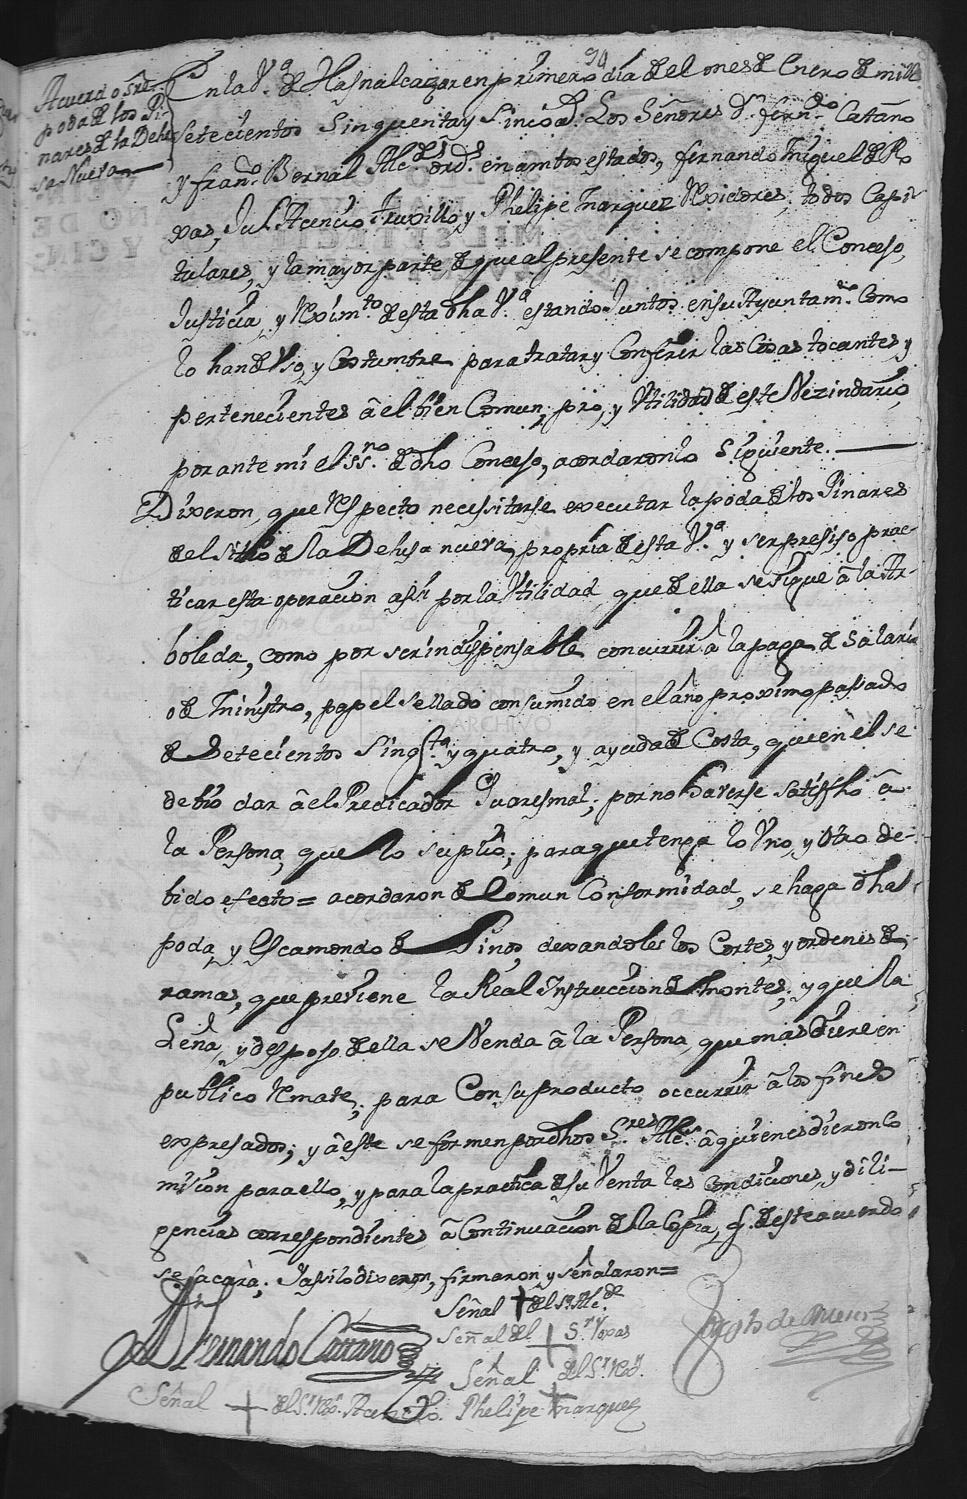 Acuerdo sre.
poda de los Pi-
nares de la Dehe-
sa Nueva
En la Va. de Haznalcazar en primero dia de el mes de Enero de mill
setecientos Sinquenta y Sinco as. Los Señores Dn. Ferndo. Cataño
y Franco. Bernal Alcdes. ords. en ambos estados, fernando Miguel de Ro
xas, Ju. Acencio Truxillo, y Phelipe Marquez Rexidores, todos Capi-
tulares, y la mayor parte de que al presente se compone el Concejo,
Justicia, y Reximto. de esta dha Va. estando Juntos en su Ayuntamto. Como
lo han de Vso, y Costumbre para tratar y Conferir las Cosas tocantes y
pertenecientes â el bien Comun, pro, y Vtilidad de este Vezindario,
por ante mi el ssno. de dho Concejo, acordaron lo Siguiente.
Dixeron, que Respecto necessitarse executar la poda de los Pinares
de el Sitio de la Dehesa nueva, propria de esta Va. y ser presiso prac-
ticar esta operacion assi por la Vtilidad, que de ella se sigue â la Ar-
boleda, como por ser indispensable concurrir â la paga de Salario
de Ministro, papel sellado consumido en el año proximo passado
de Setecientos Singta. y quatro, y ayuda de Costa, que en èl se
debio dar â el Predicador Quaresmal; por no haverse satisfho â
la Persona, que lo suplio; para que tenga lo Vno, y Otro de-
bido efecto= acordaron de Comun Conformidad, se haga dha
poda, y Escamondo de Pinos, dexandoles los Cortes, y ordenes de
ramas, que previene la Real Instruccion de Montes; y que la
Leña, y desposo de ella se Venda â la Persona, que mas diere en
publico Remate; para Con su producto occurrir â los fines
expresados; y â este se formen por dhos Sres. Alcs. â quienes dieron Co
mision para ello, y para la practica de su Venta las Condiciones, y dili-
gencias correspondientes â Continuacion de la Copia, q. de este acuerdo
se sacarà; Y assi lo dixeron, firmaron y señalaron=
Señal + del sr. Alcde.
Fernando Cattaño
Señal del + Sr. Roxas
Señal + del Sr. Rexr.
Señal + del Sr. Rexr. Acencio. Phelipe Marquez